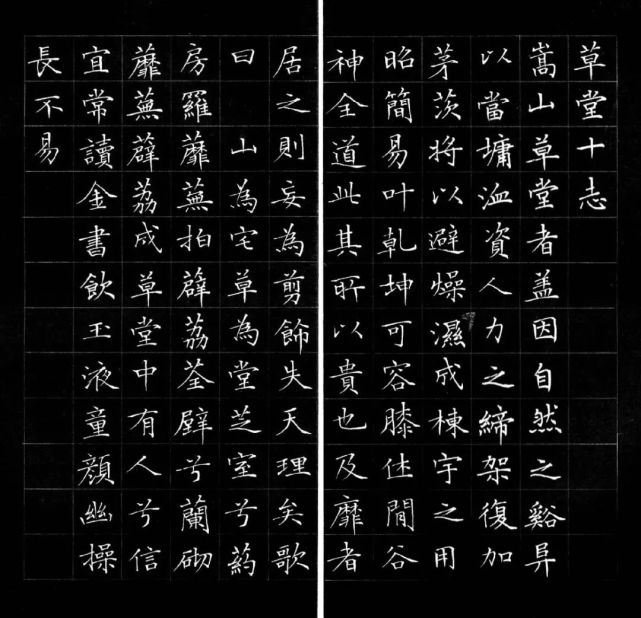 草堂十志
嵩山草堂者盖因自然之谿阜
以當墉洫資人力之締架復加
茅茨将以避燥濕成棟宇之用
昭簡易叶乾坤可容膝休閒谷
神全道此其所以貴也及靡者
居之則妄為剪飾失天理矣歌
曰 山為宅草為堂芝室兮葯
房羅蘼蕪拍薜荔荃壁兮蘭砌
蘼蕪薜荔成草堂中有人兮信
宜常讀金書飲玉液童顔幽操
長不易